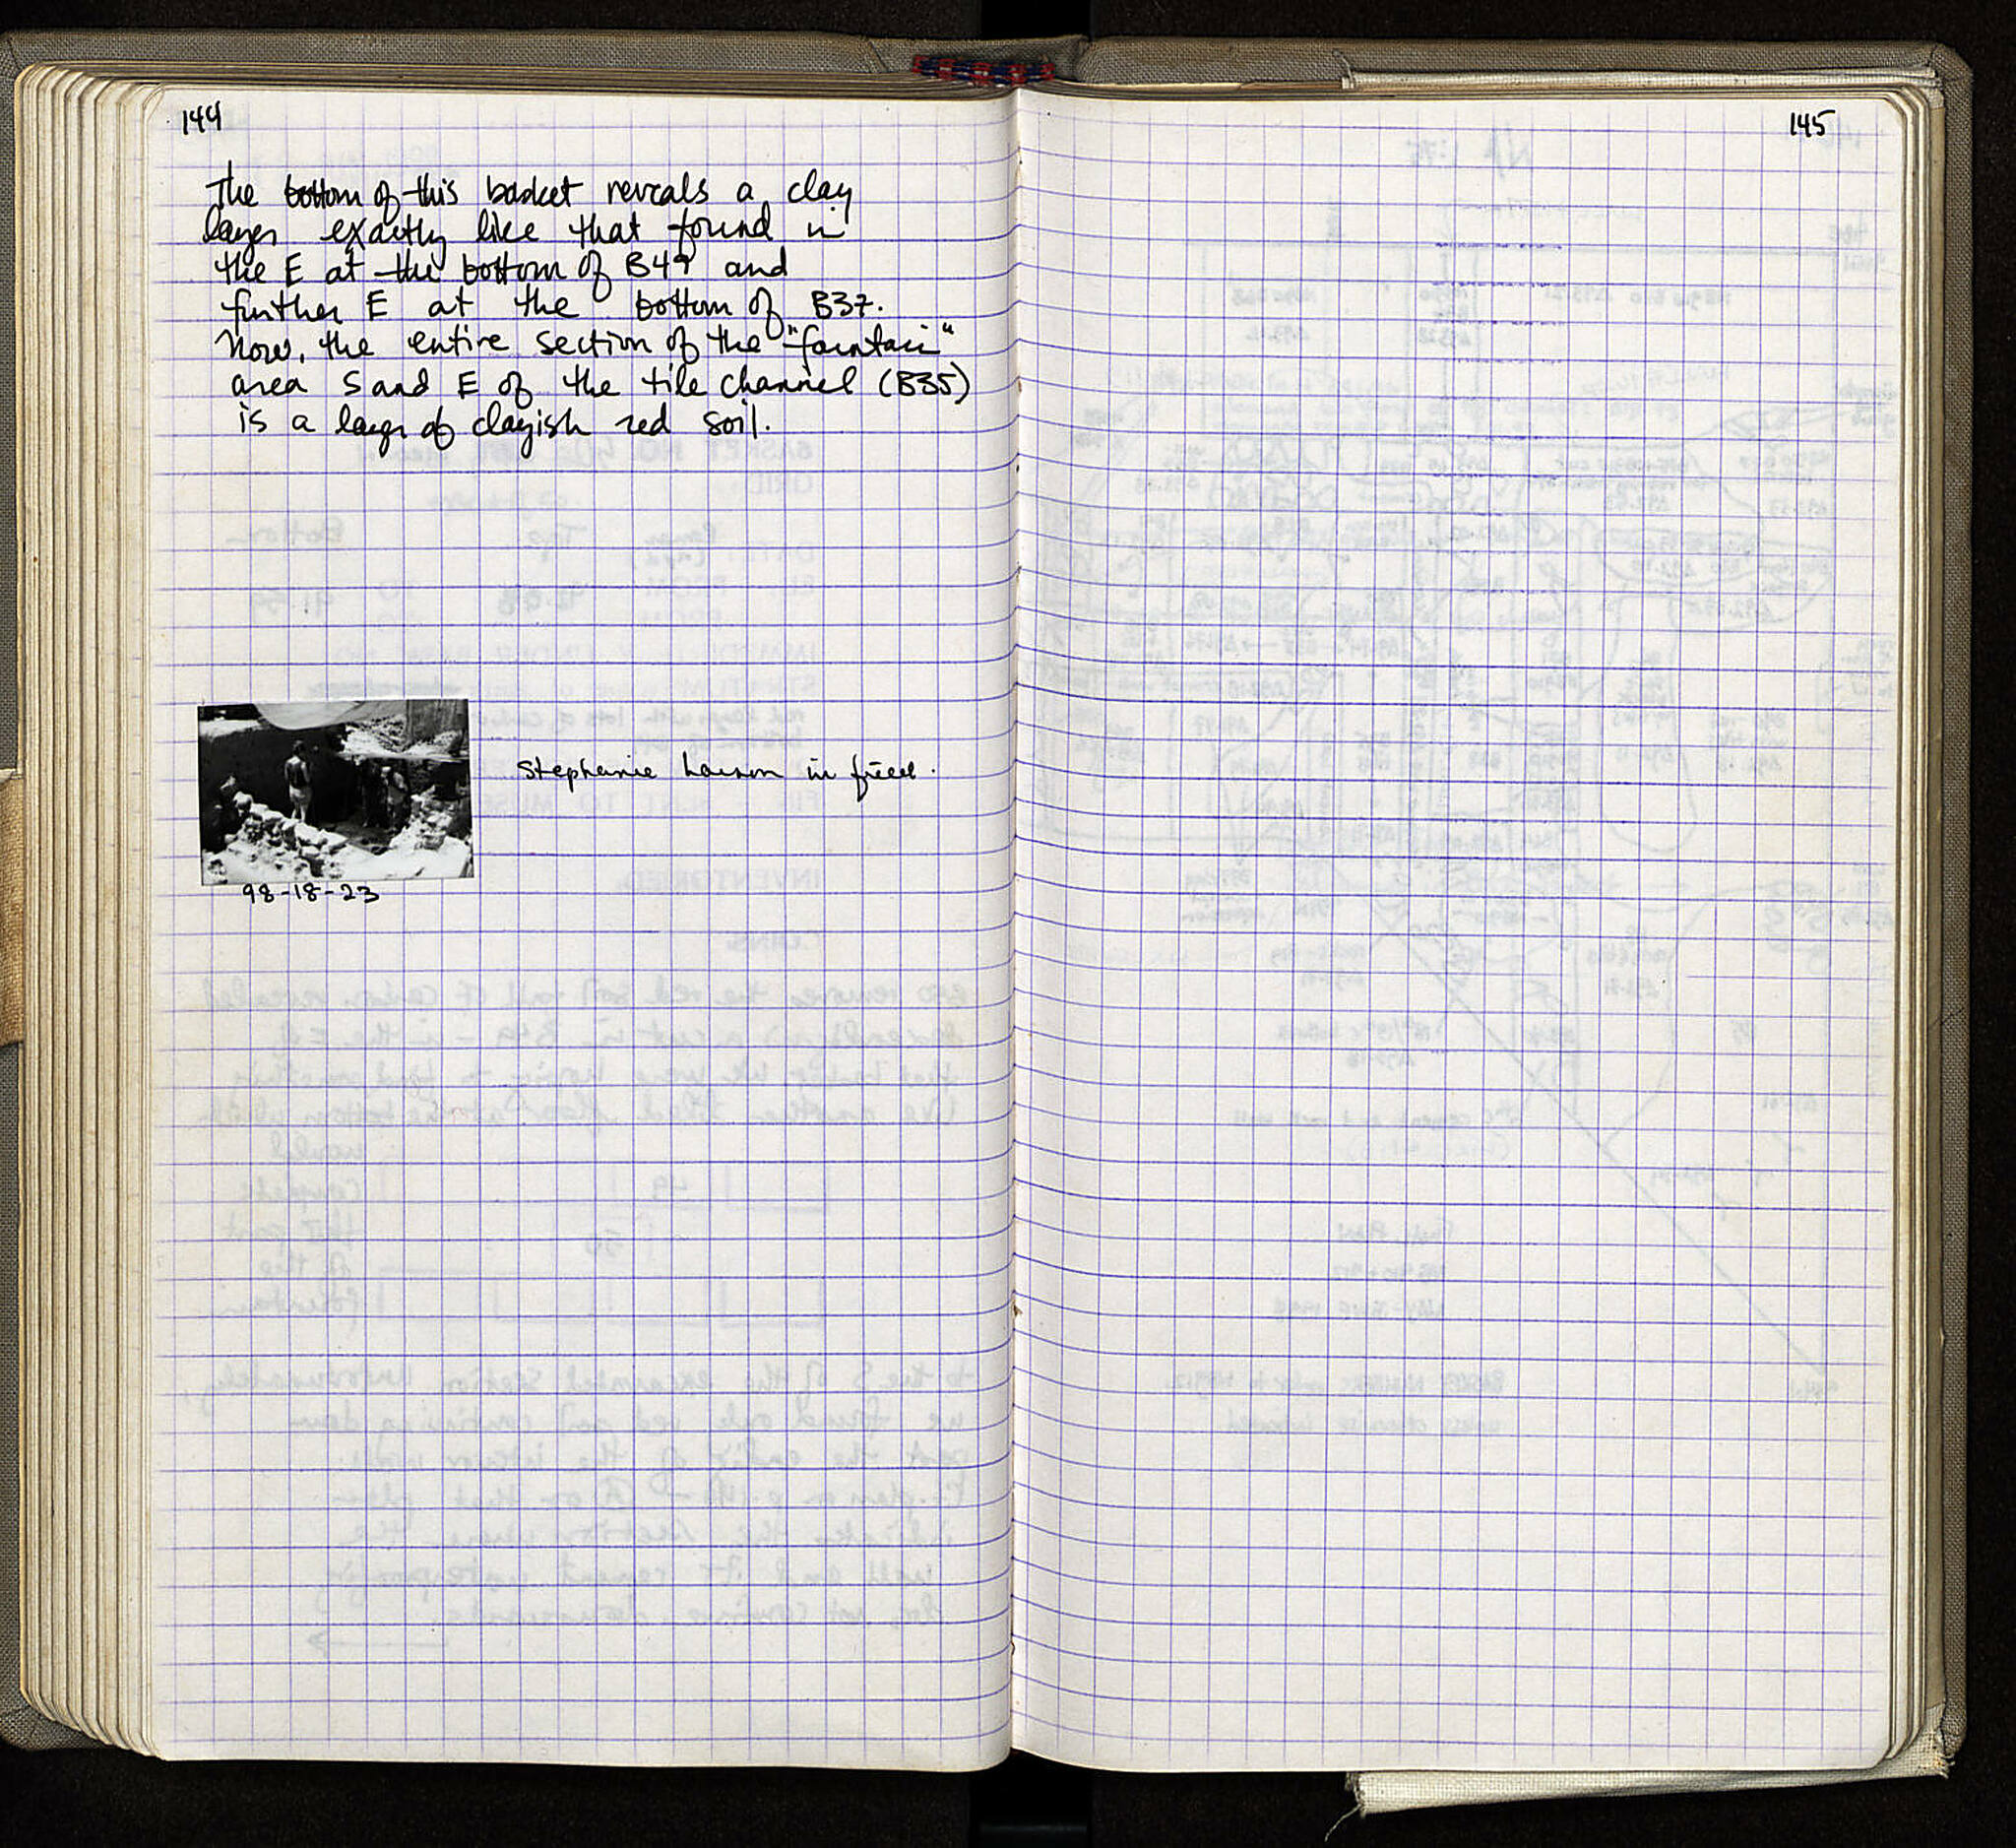 144
The bottom of this basket reveals a clay
layer exactly like that found in
the E at the bottom of B49 and
further E at the bottom of B37.
Now, the entire section of the "fountain"
area S and E of the tile channel (B35)
is a layer of clayish red soil.
Stephanie in
98-18-23
145